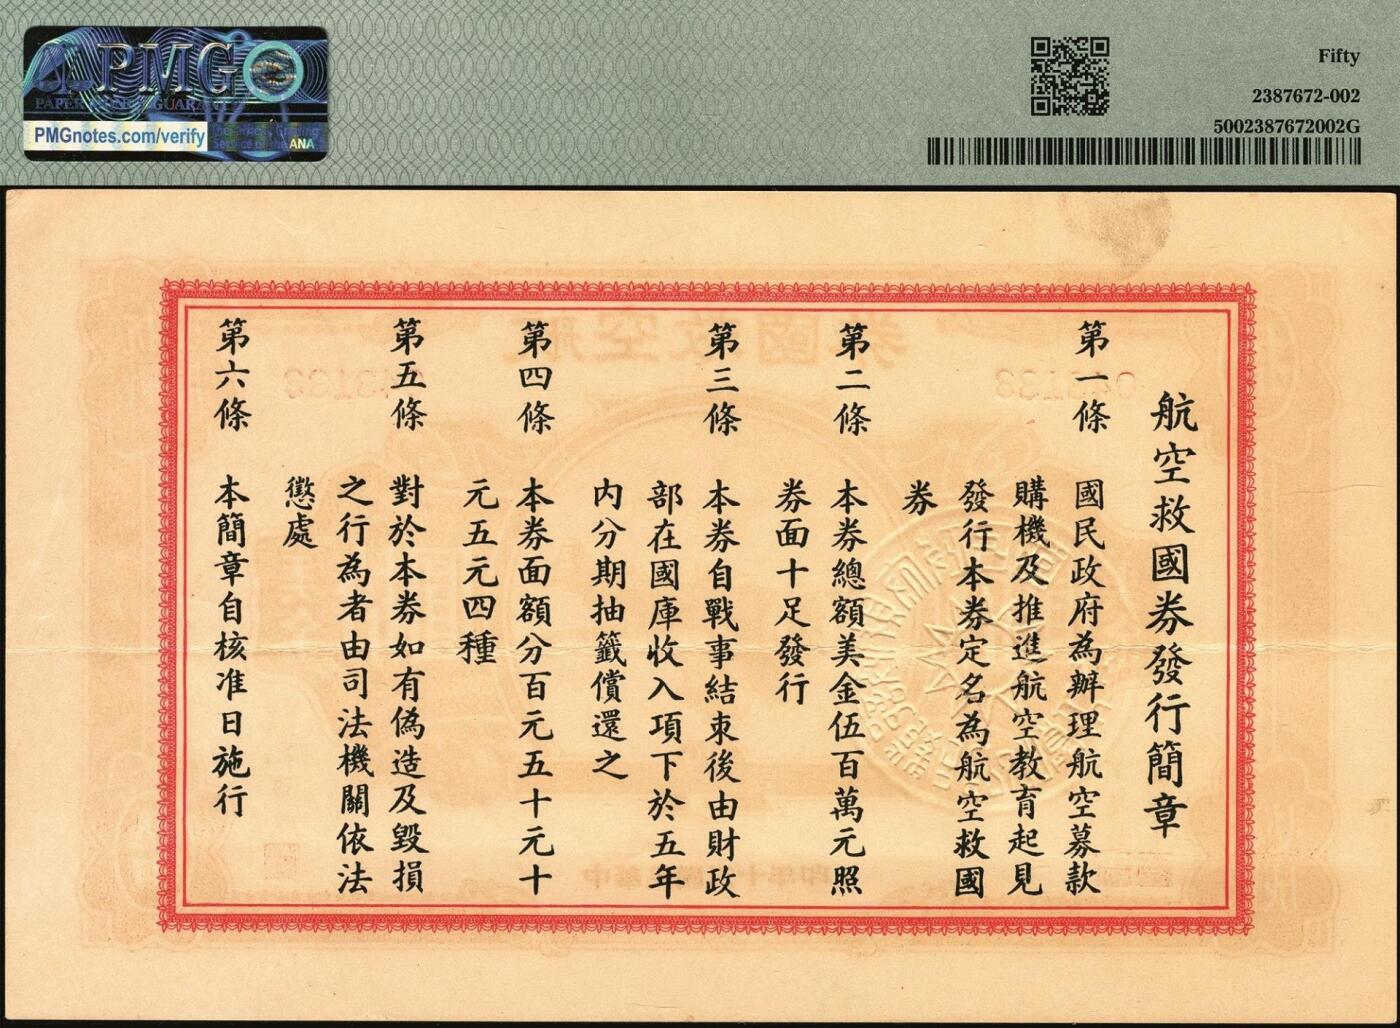 PMG
PAPER MONEY GUARANTY
PMGnotes.com/verify
The Official Grading
Service of the ANA
Fifty
2387672-002
5002387672002G
航空救國券發行簡章
第一條 國民政府為辦理航空募款
購機及推進航空教育起見
發行本券定名為航空救國
券
第二條 本券總額美金伍百萬元照
券面十足發行
第三條 本券自戰事結束後由財政
部在國庫收入項下於五年
內分期抽籤償還之
第四條 本券面額分百元五十元十
元五元四種
第五條 對於本券如有偽造及毀損
之行為者由司法機關依法
懲處
第六條 本簡章自核准日施行